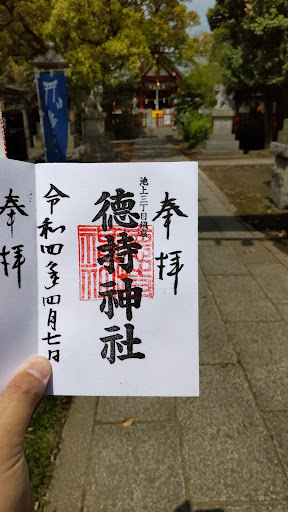 奉拝
池上三丁目鎮座
德持神社
令和四年四月七日
奉拝